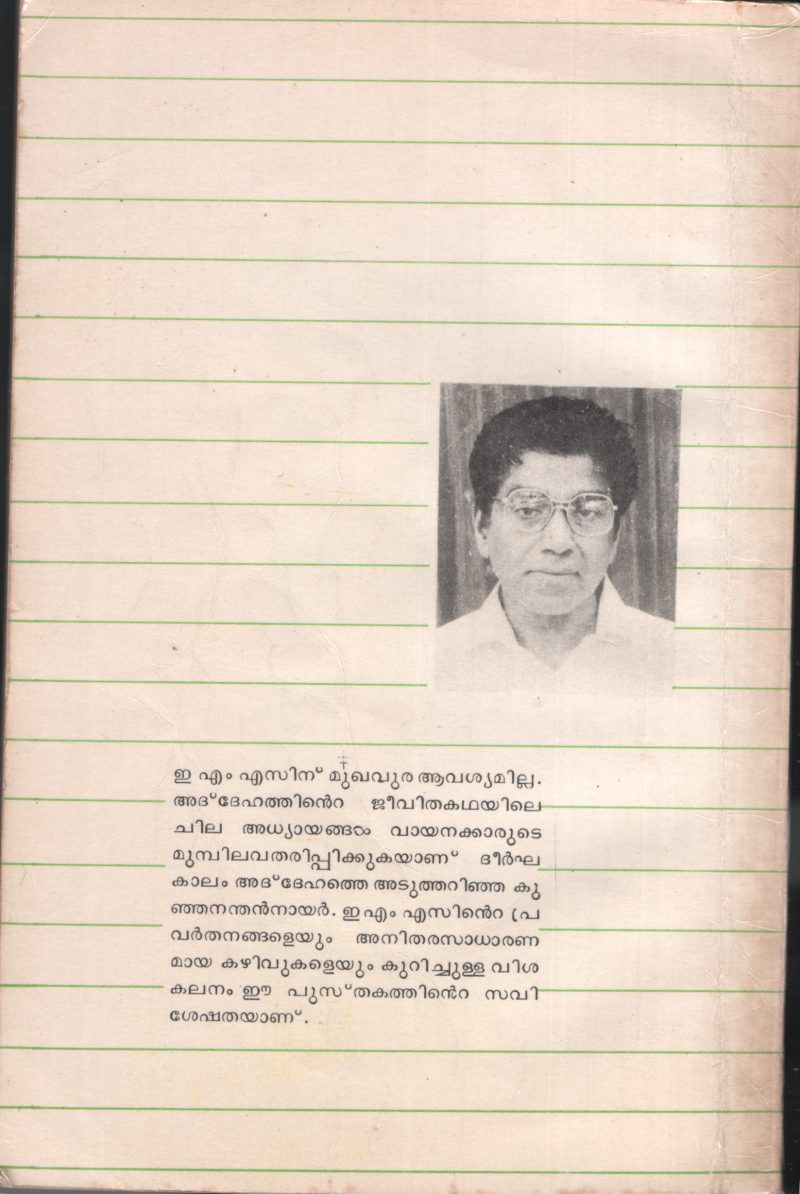 ഇ എം എസിന് മുഖവുര ആവശ്യമില്ല.
അദ്ദേഹത്തിൻെറ ജീവിതകഥയിലെ
ചില അധ്യായങ്ങൾ വായനക്കാരുടെ
മുമ്പിലവതരിപ്പിക്കുകയാണ് ദീർഘ
കാലം അദ്ദേഹത്തെ അടുത്തറിഞ്ഞ കു
ഞ്ഞനന്തൻനായർ. ഇ എം എസിൻെറ പ്ര
വർതനങ്ങളെയും അനിതരസാധാരണ
മായ കഴിവുകളെയും കുറിച്ചുള്ള വിശ
കലനം ഈ പുസ്തകത്തിൻെറ സവി
ശേഷതയാണ്.